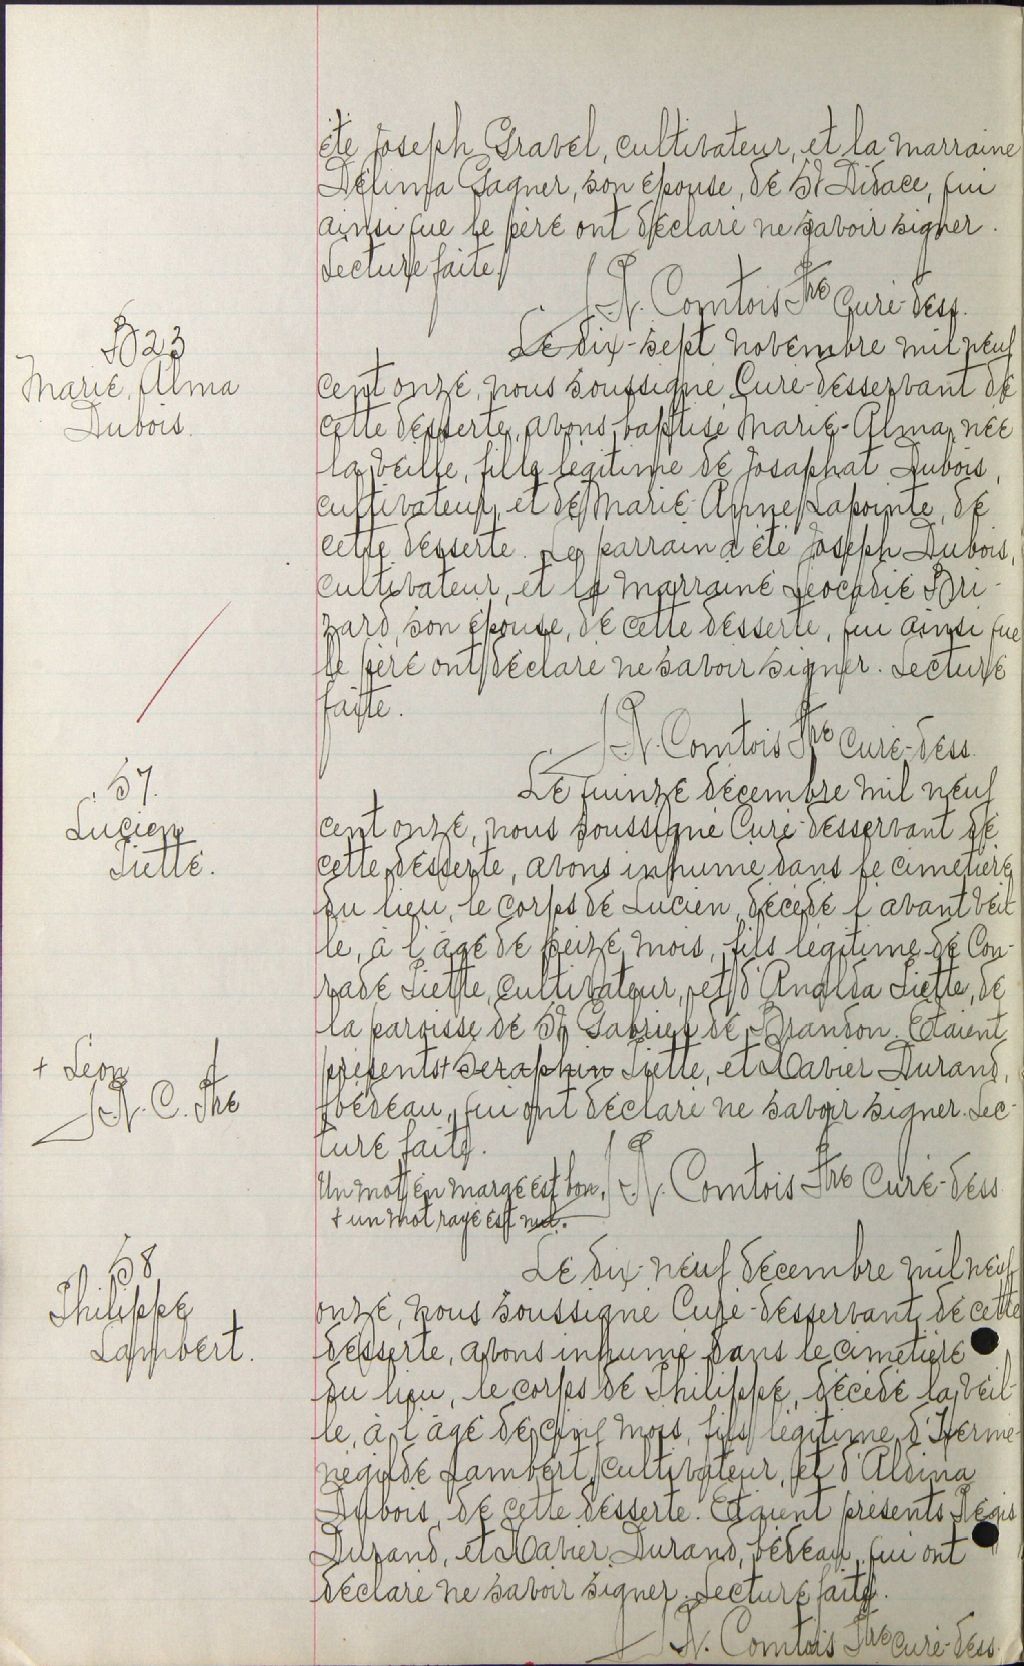 été Joseph Gravel, cultivateur, et la marraine
Délima Gagner, son épouse, de St Didace, qui
ainsi que le père ont déclaré ne savoir signer.
Lecture faite.
J. N. Comtois Ptre Curé-dess.
B 23
Marie, Alma
Dubois.
Le dix-sept novembre mil neuf
cent onze, nous soussigné Curé-desservant de
cette desserte, avons baptisé Marie-Alma, née
la veille, fille légitime de Josaphat Dubois,
cultivateur, et de Marie-Anne Lapointe, de
cette desserte. Le parrain a été Joseph Dubois,
cultivateur, et la marraine Léocadie Bri-
zard, son épouse, de cette desserte, qui ainsi que
le père ont déclaré ne savoir signer. Lecture
faite.
J. N. Comtois Ptre Curé-dess.
S7.
Lucien
Piette.
Le quinze décembre mil neuf
cent onze, nous soussigné Curé-desservant de
cette desserte, avons inhumé dans le cimetière
du lieu, le corps de Lucien, décédé l'avant veil-
le, à l'âge de seize mois, fils légitime de Con-
rade Piette, cultivateur, et d'Analda Piette, de
la paroisse de St Gabriel de Brandon. Etaient
présents + Séraphin Piette, et Xavier Durand,
bedeau, qui ont déclaré ne savoir signer. Lec-
ture faite.
+ Léon
J. N. C. Ptre
Un mot en marge est bon,
+ un mot rayé est nul.
J. N. Comtois Ptre Curé-dess
S8
Philippe
Lambert.
Le dix-neuf décembre mil neuf
onze, nous soussigné Curé-desservant de cette
desserte, avons inhumé dans le cimetière
du lieu, le corps de Philippe, décédé la veil-
le, à l'âge de cinq mois, fils légitime d'Hermé-
négilde Lambert, cultivateur, et d'Aldina
Dubois, de cette desserte. Etaient présents Régis
Durand, et Xavier Durand, bedeau, qui ont
déclaré ne savoir signer. Lecture faite.
J. N. Comtois Ptre Curé-dess.